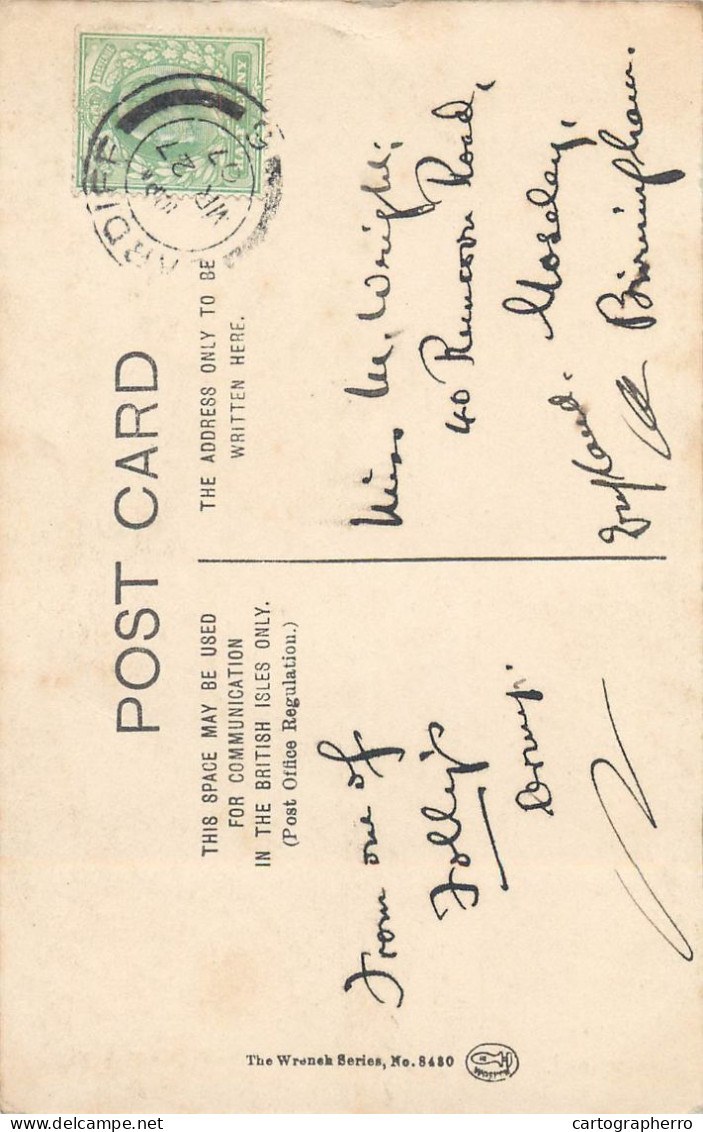 POST CARD
THIS SPACE MAY BE USED
FOR COMMUNICATION
IN THE BRITISH ISLES ONLY.
(Post Office Regulation.)
THE ADDRESS ONLY TO BE
WRITTEN HERE.
ARDIFF
MR 27
07
From one of
Folly's
Army.
Miss M. Wright.
40 Runcorn Road,
Moseley.
Birmingham.
England.
The Wrench Series, No. 8480
cartographerro